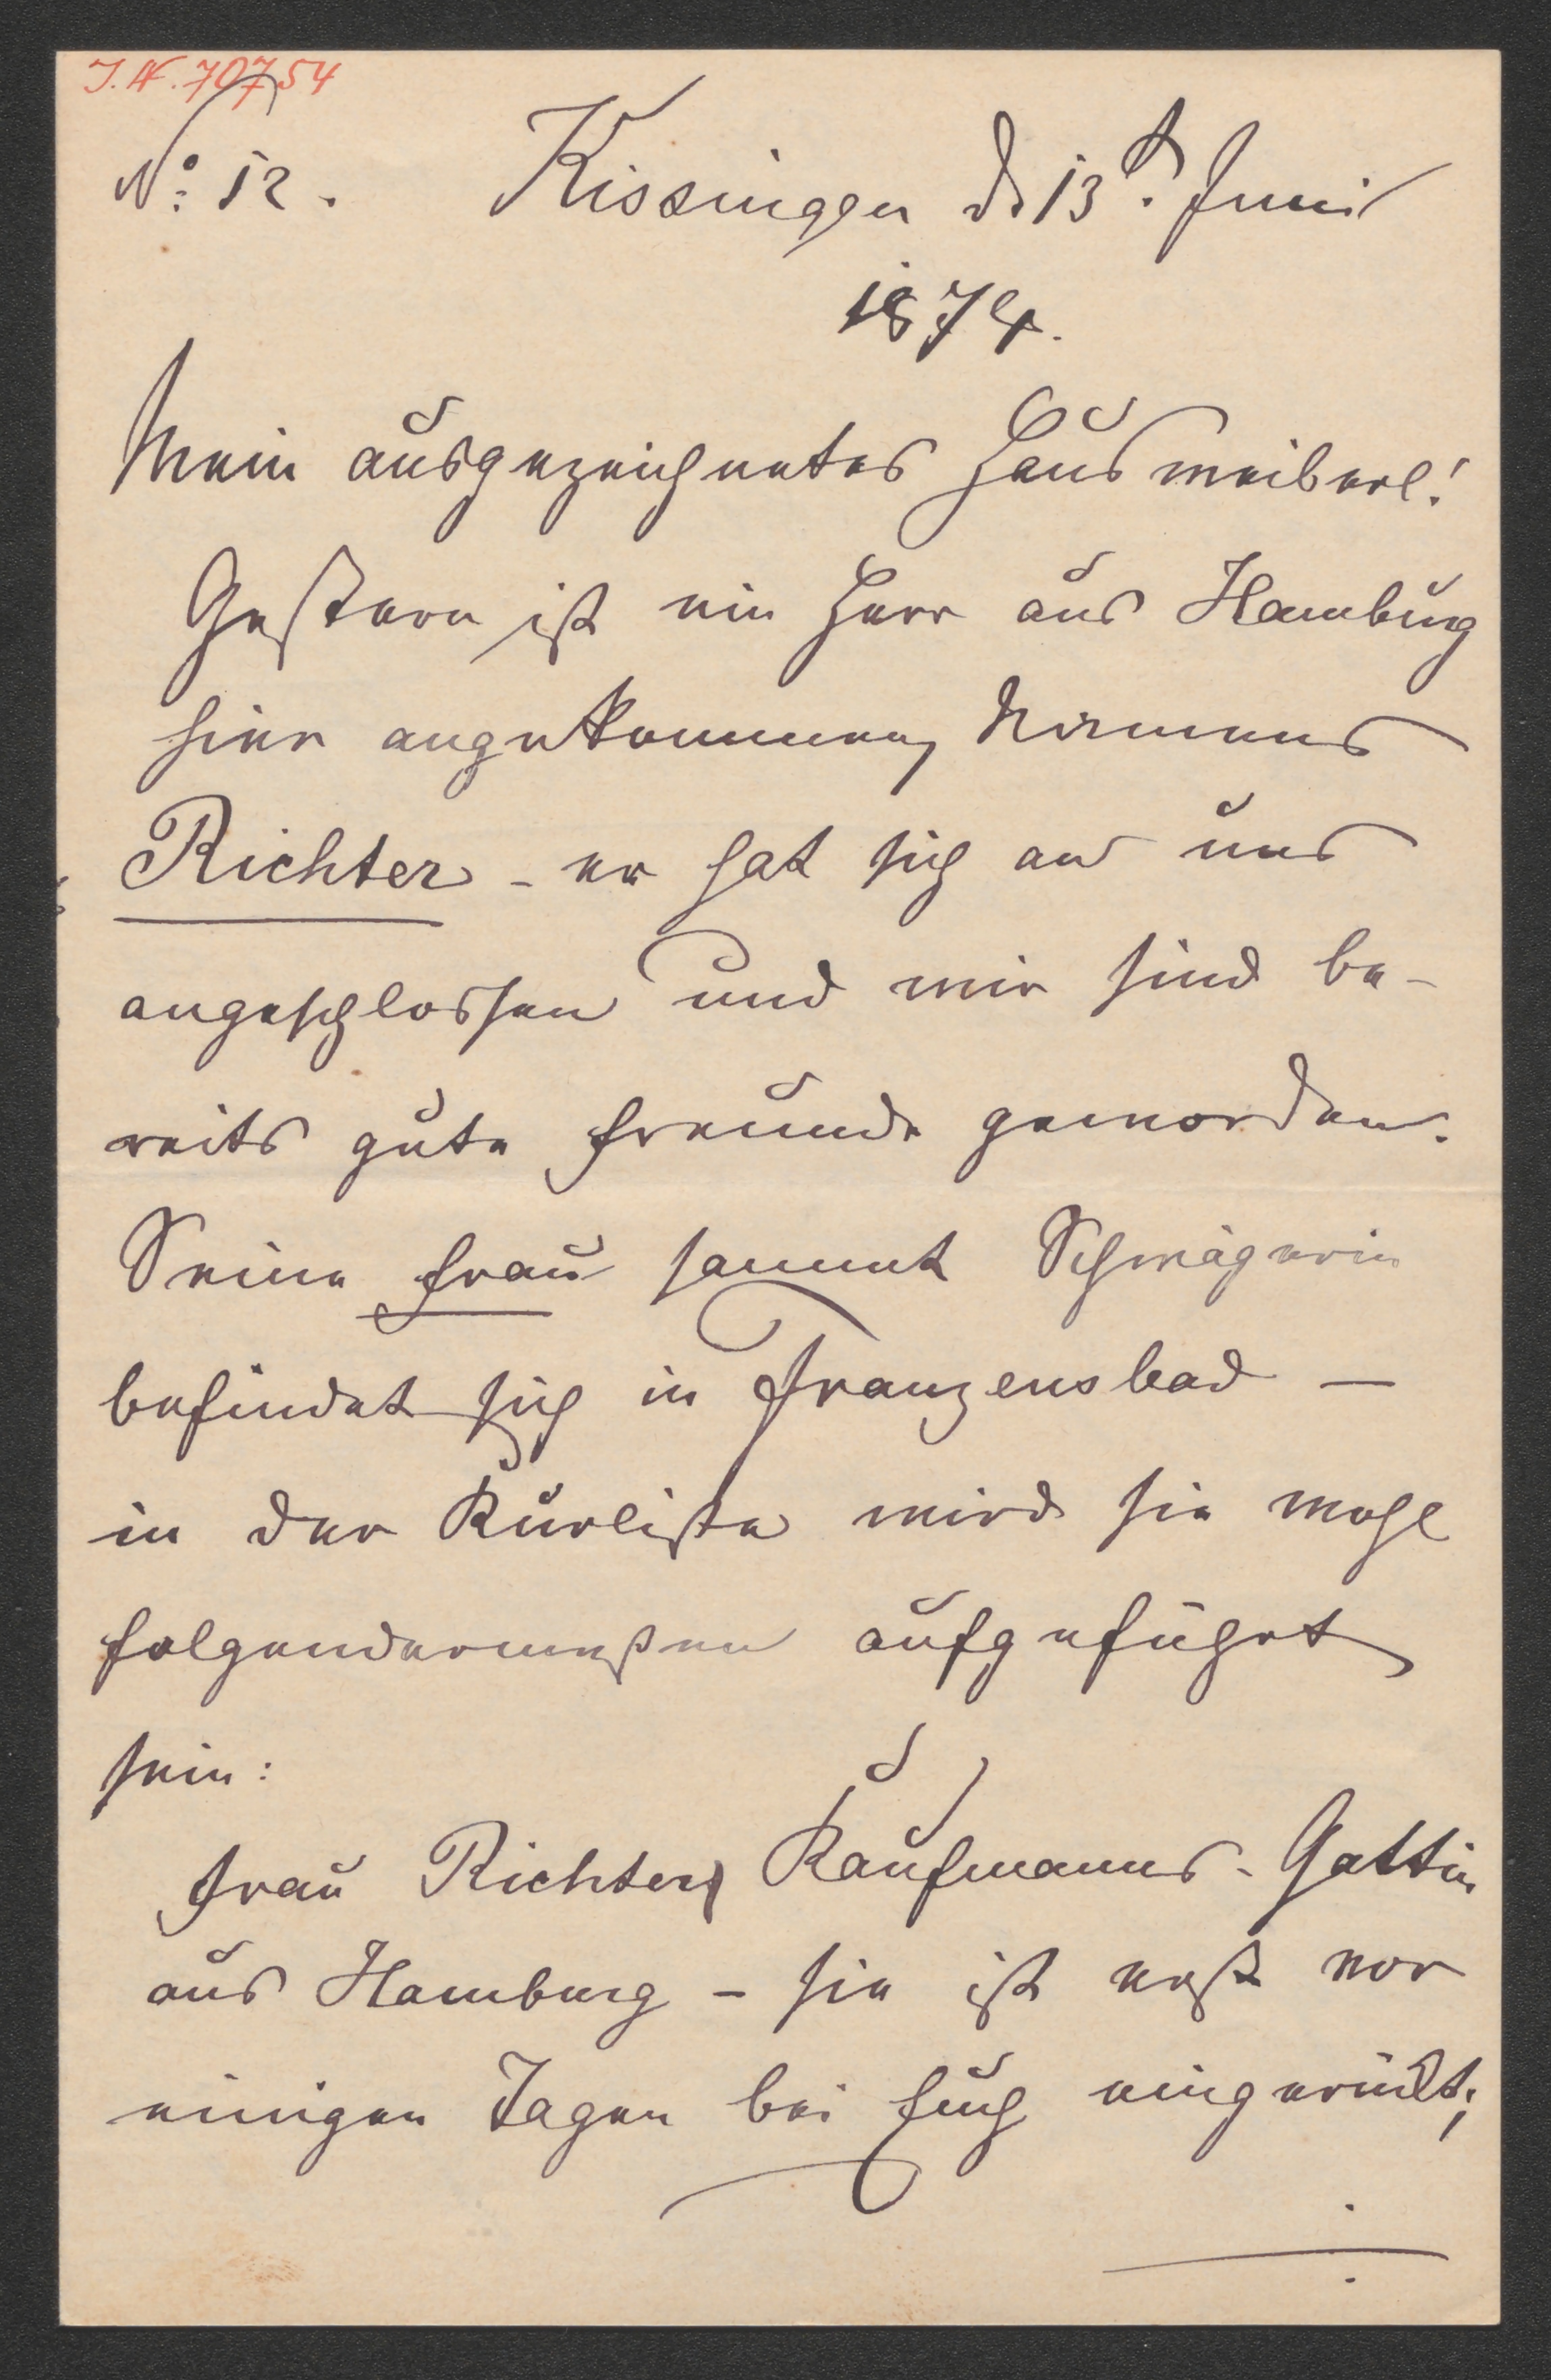 J. N. 70754
No: 12. Kissingen d 13t. Juni
1874.
Mein ausgezeichnetes Hausweiberl!
Gestern ist ein Herr aus Hamburg
hier angekommen, Namens
Richter - er hat sich an uns
angeschlossen und wir sind be-
reits gute Freunde geworden.
Seine Frau sammt Schwägerin
befindet sich in Franzensbad —
in der Kurliste wird sie wohl
folgendermaßen aufgeführt
sein:
Frau Richter, Kaufmanns-Gattin
aus Hamburg - sie ist erst vor
einigen Tagen bei Euch eingerückt;
./.